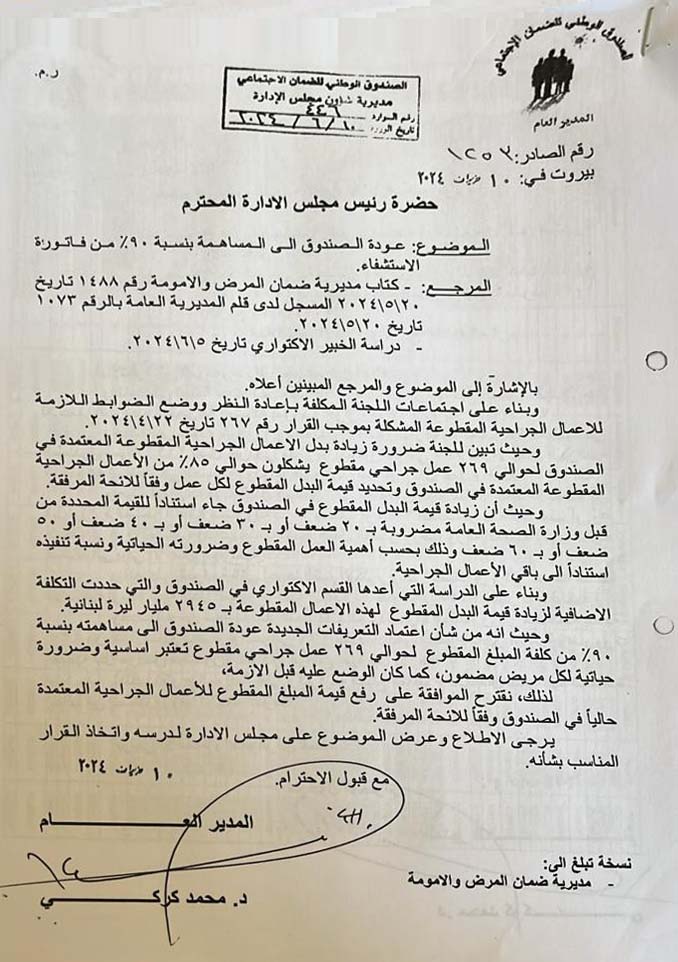 الصندوق الوطني للضمان الإجتماعي
المدير العام
ر.م.
الصندوق الوطني للضمان الاجتماعي
مديرية شؤون مجلس الإدارة
رقم الوارد ٤٤٦
تاريخ الورود ١٠/٦/٢٠٢٤
رقم الصادر: ١٢٥٣
بيروت في: ١٠ حزيران ٢٠٢٤
حضرة رئيس مجلس الادارة المحترم
الموضوع: عودة الصندوق الى المساهمة بنسبة ٩٠٪ من فاتورة
الاستشفاء.
المرجع: - كتاب مديرية ضمان المرض والامومة رقم ١٤٨٨ تاريخ
٢٠٢٤\٥\٢٠ المسجل لدى قلم المديرية العامة بالرقم ١٠٧٣
تاريخ ٢٠٢٤\٥\٢٠.
- دراسة الخبير الاكتواري تاريخ ٢٠٢٤\٦\٥.
بالإشارة إلى الموضوع والمرجع المبينين أعلاه.
وبناء على اجتماعات اللجنة المكلفة بإعادة النظر ووضع الضوابط اللازمة
للاعمال الجراحية المقطوعة المشكلة بموجب القرار رقم ٢٦٧ تاريخ ٢٠٢٤\٤\٢٢.
وحيث تبين للجنة ضرورة زيادة بدل الاعمال الجراحية المقطوعة المعتمدة في
الصندوق لحوالي ٢٦٩ عمل جراحي مقطوع يشكلون حوالي ٨٥٪ من الأعمال الجراحية
المقطوعة المعتمدة في الصندوق وتحديد قيمة البدل المقطوع لكل عمل وفقاً للائحة المرفقة.
وحيث أن زيادة قيمة البدل المقطوع في الصندوق جاء استناداً للقيمة المحددة من
قبل وزارة الصحة العامة مضروبة بـ ٢٠ ضعف أو بـ ٣٠ ضعف أو بـ ٤٠ ضعف أو ٥٠
ضعف أو بـ ٦٠ ضعف وذلك بحسب أهمية العمل المقطوع وضرورته الحياتية ونسبة تنفيذه
استناداً الى باقي الأعمال الجراحية.
وبناء على الدراسة التي أعدها القسم الاكتواري في الصندوق والتي حددت التكلفة
الاضافية لزيادة قيمة البدل المقطوع لهذه الاعمال المقطوعة بـ ٢٩٤٥ مليار ليرة لبنانية.
وحيث انه من شأن اعتماد التعريفات الجديدة عودة الصندوق الى مساهمته بنسبة
٩٠٪ من كلفة المبلغ المقطوع لحوالي ٢٦٩ عمل جراحي مقطوع تعتبر اساسية وضرورة
حياتية لكل مريض مضمون، كما كان الوضع عليه قبل الازمة،
لذلك، نقترح الموافقة على رفع قيمة المبلغ المقطوع للأعمال الجراحية المعتمدة
حالياً في الصندوق وفقاً للائحة المرفقة.
يرجى الاطلاع وعرض الموضوع على مجلس الادارة لدرسه واتخاذ القرار
المناسب بشأنه.
١٠ حزيران ٢٠٢٤
مع قبول الاحترام.
المدير العـــــــــام
د. محمد كركـــــــــي
نسخة تبلغ الى:
- مديرية ضمان المرض والامومة